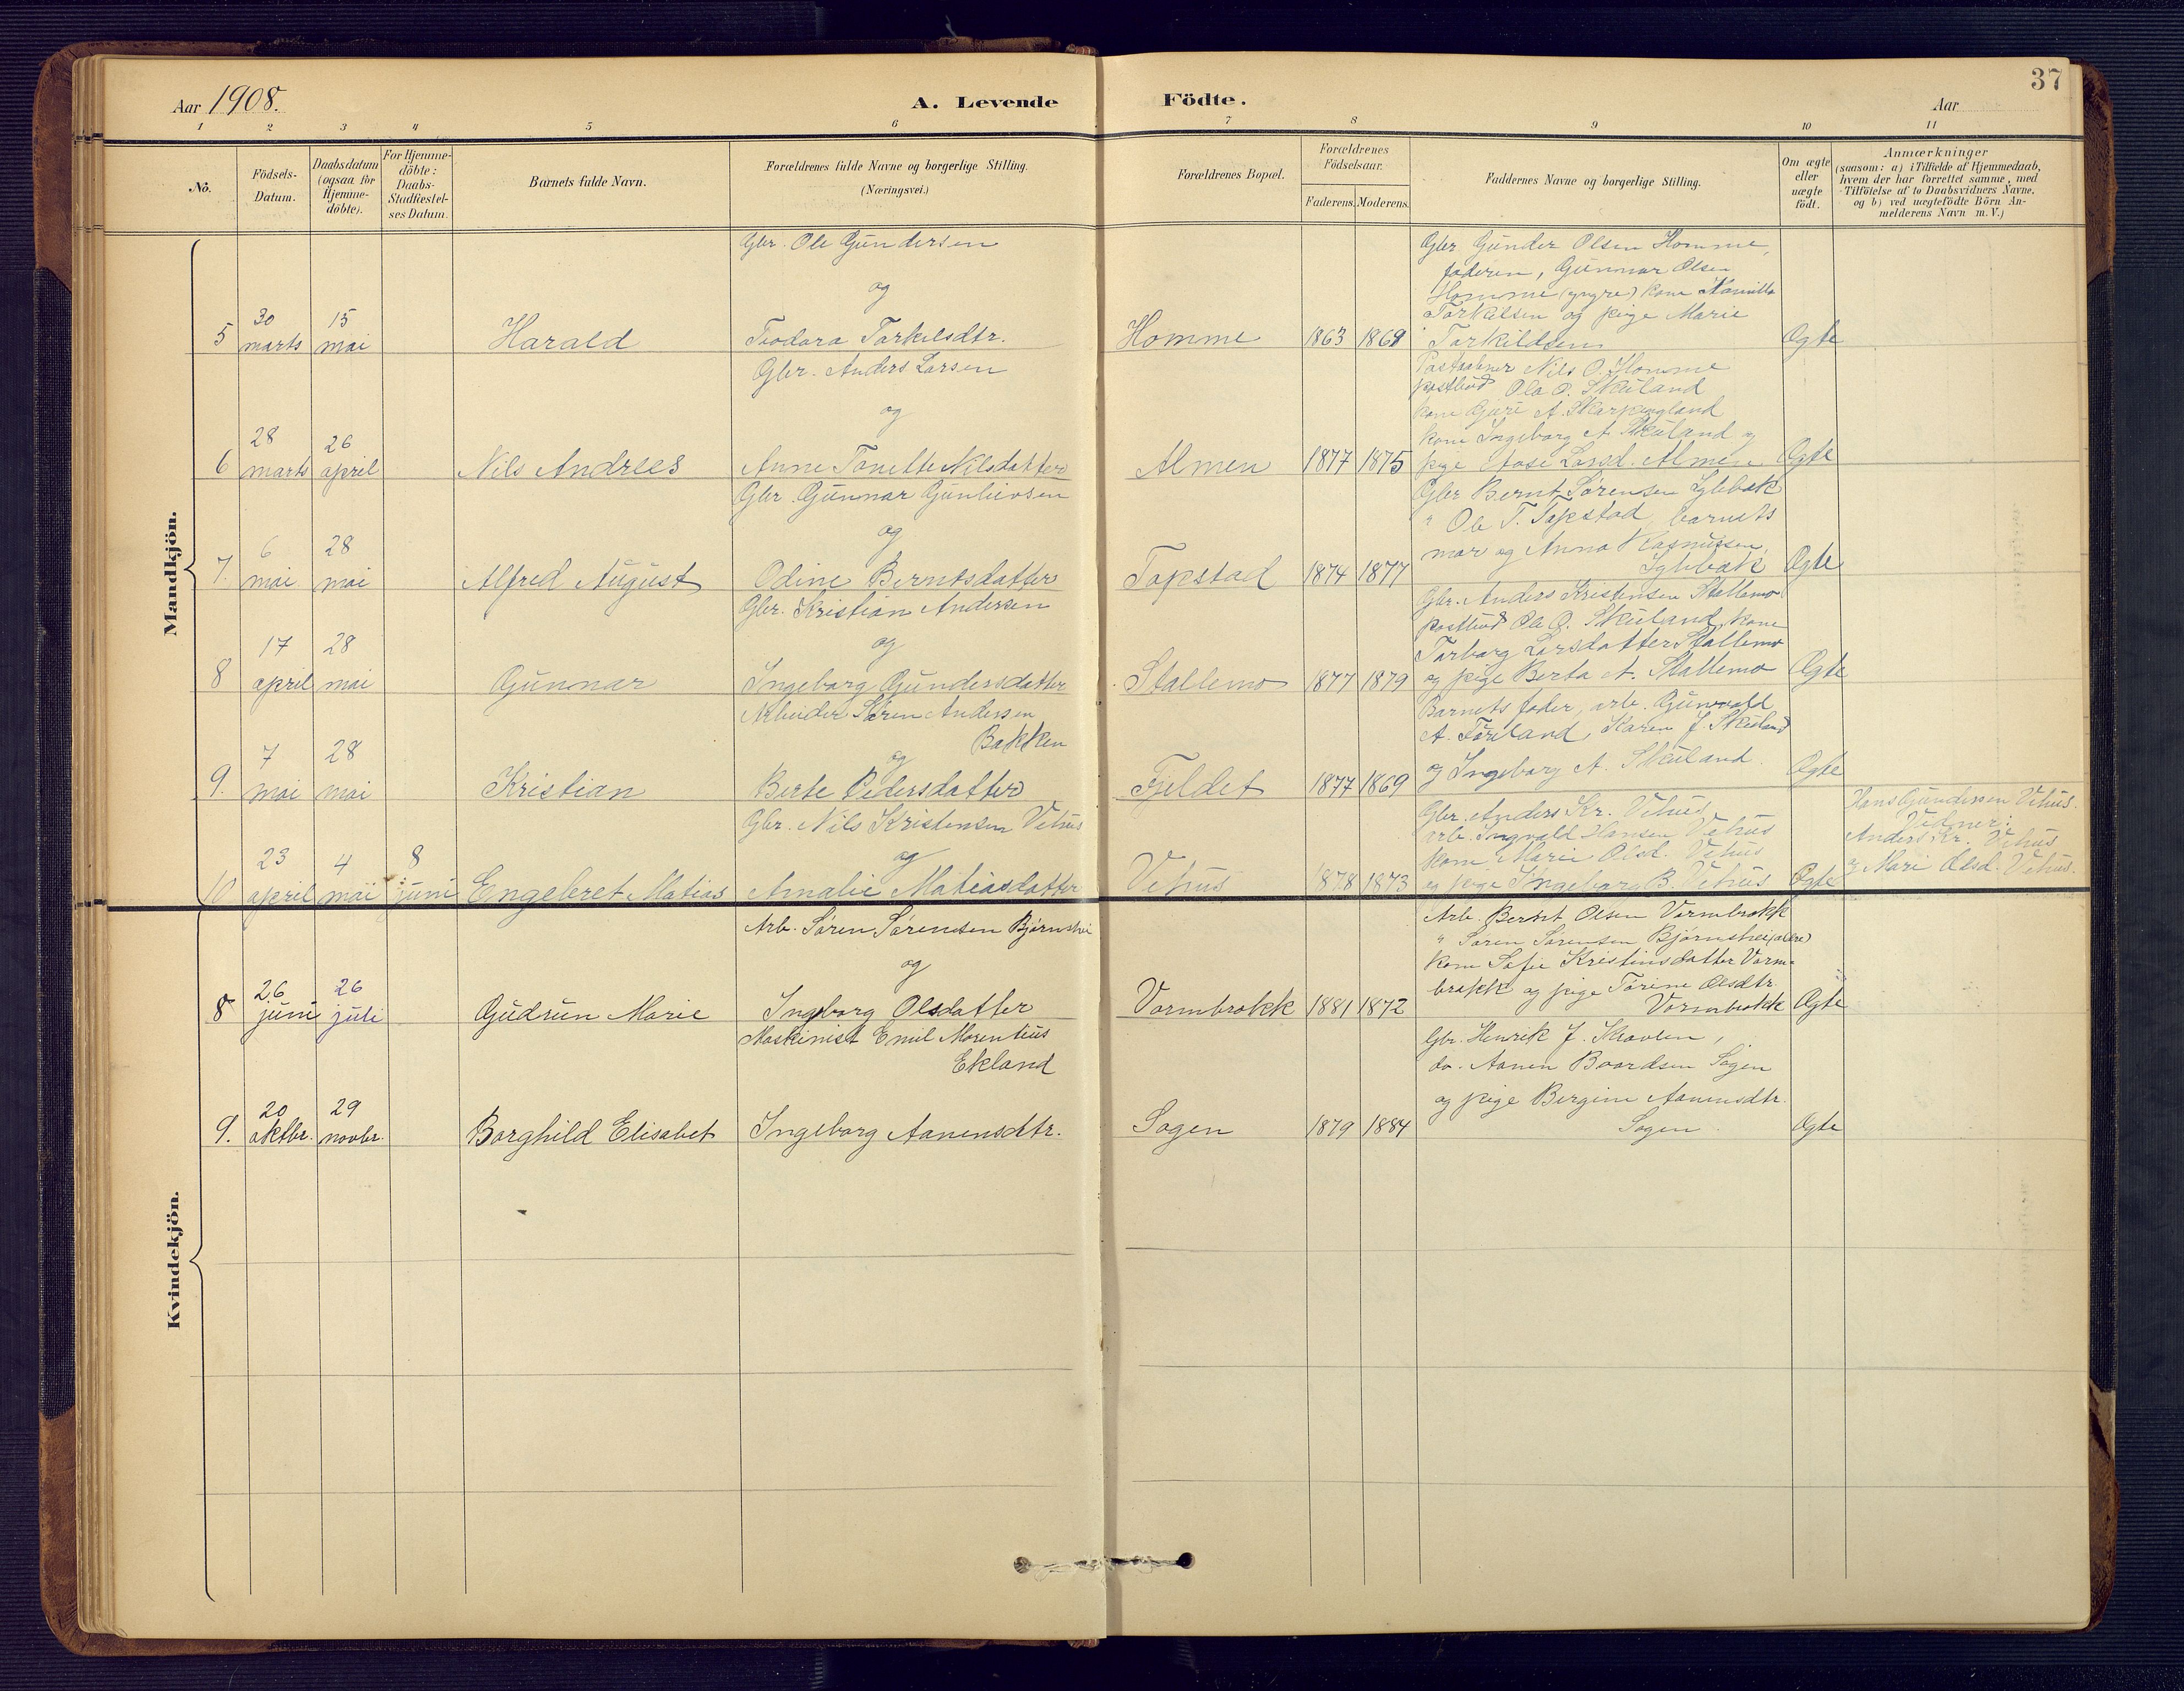 37
Aar 1908.
A. Levende Födte.
Aar
1 2 3 4 5 6 7 8 9 10 11
No.
Födsels-
Datum.
Daabsdatum
(ogsaa for
Hjemme-
döbte).
For Hjemme-
döbte:
Daabs-
Stadfæstel-
ses Datum.
Barnets fulde Navn.
Forældrenes fulde Navne og borgerlige Stilling.
(Næringsvei.)
Forældrenes Bopæl.
Forældrenes
Födselsaar.
Faderens. Moderens.
Faddernes Navne og borgerlige Stilling.
Om ægte
eller
uægte
födt.
Anmærkninger
(saasom: a) i Tilfælde af Hjemmedaab,
hvem der har forrettet samme, med
Tilföielse af to Daabsvidners Navne,
og b) ved uægtefödte Börn An-
melderens Navn m. V.)
Mandkjön.
Gbr. Ole Gundersen
og
5 30 marts 15 mai Harald Teodora Torkelsdtr.
Homme 1863 1869
Gbr Gunder Olsen Homme,
faderen, Gunnar Olsen
Homme (yngre) kone
Torkilsen og pige Marie
Torkildsen
Ægte
Gbr. Anders Larsen
og
6 28 marts 26 april Nils Andrees Anne Tonette Nilsdatter
Almen 1877 1875
Postaabner Nils O. Homme
postbud Ole O. Skuland
kone Guri A. Skarpengland
kone Ingeborg A. Skuland og
pige Aase Larsd. Almen
Ægte
Gbr. Gunnar Gunlievsen
og
7. 6 mai 28 mai Alfred August Odine Berntsdatter
Topstad 1874 1877
Gbr Bernt Sørensen Iglebæk
" Ole T. Topstad, barnets
mor og Anna Rasmussen,
Iglebæk
Ægte
Gbr. Kristian Andersen
og
8 17 april 28 mai Gunnar Ingeborg Gundersdatter
Stallemo 1877 1879
Gbr. Anders Kristensen Stallemo
postbud Ole O. Skuland, kone
Torborg Larsdatter Stallemo
og pige Berta A. Stallemo
Ægte
Arbeider Søren Andersen
Bakken
og
9. 7 mai 28 mai Kristian Berte Pedersdatter
Fjeldet 1877 1869
Barnets fader, arb. Gunvald
A. Føreland, Karen J. Skuland
og Ingeborg A. Skuland.
Ægte
Gbr. Nils Kristensen Vehus
og
10 23 april 4 mai 8 juni Engebret Matias Amalie Matiasdatter
Vehus 1878 1873
Gbr. Anders Kr. Vehus
arb. Ingvald Hansen Vehus
kone Marie Olsd. Vehus
og pige Ingeborg B. Vehus
Ægte
Hans Gundersen Vehus.
Vidner:
Anders Kr. Vehus
og Mari Olsd. Vehus.
Kvindekjön.
Arb. Søren Sørensen Bjørnshei
og
8 26 juni 26 juli Gudrun Marie Ingeborg Olsdatter
Vormbrokk 1881 1872
Arb. Berint Olsen Vormbrokk
" Søren Sørensen Bjørnshei (ældre)
kone Sofie Kristinsdatter Vorm-
brokk og pige Torine Olsdtr.
Vormbrokk
Ægte
Maskinist Emil Morentius
Ekland
9. 20 oktbr. 29 novbr. Borghild Elisabet Ingeborg Aanensdtr.
Sogen 1879 1884
Gbr. Henrik J. Skovlen,
do. Aanen Baardsen Sogen
og pige Bergine Aanensdtr.
Sogen.
Ægte